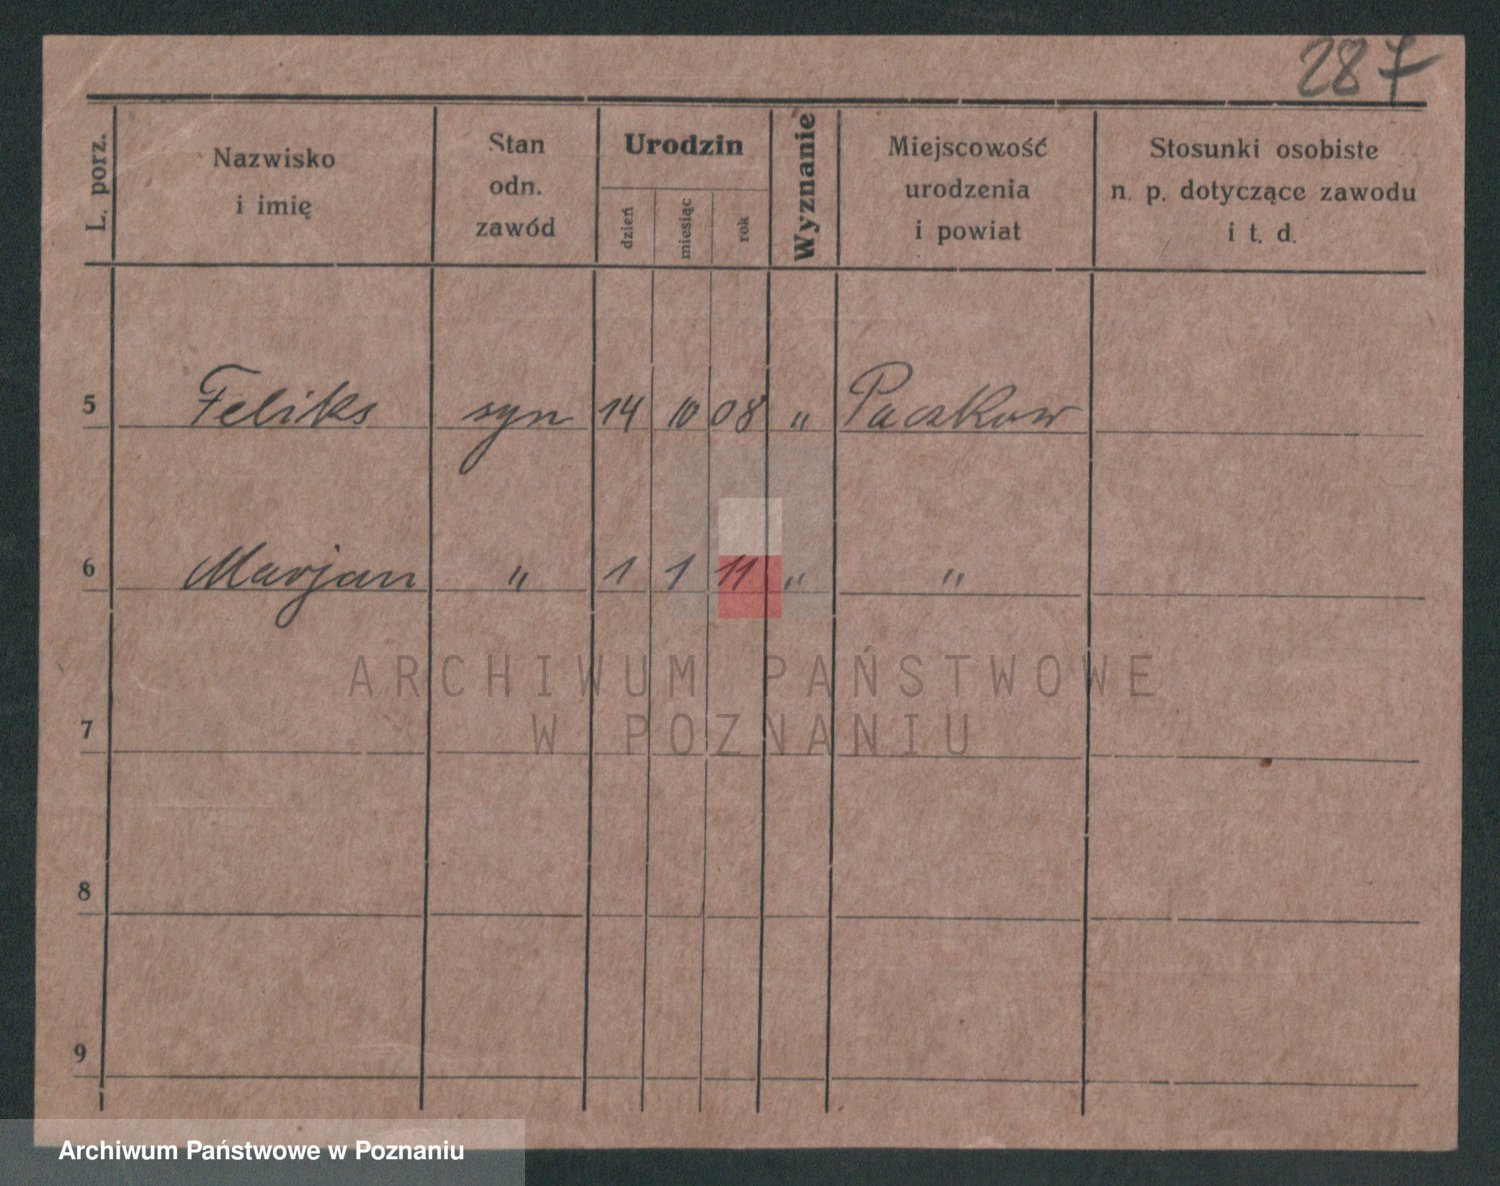 287
L. porz. Nazwisko i imię Stan odn. zawód Urodzin dzień miesiąc rok Wyznanie Miejscowość urodzenia i powiat Stosunki osobiste n. p. dotyczące zawodu i t. d.
5 Feliks syn 14 10 08 „ Paczkow
6 Marjan „ 1 1 11 „ „
ARCHIWUM PAŃSTWOWE
W POZNANIU
7
8
9
Archiwum Państwowe w Poznaniu